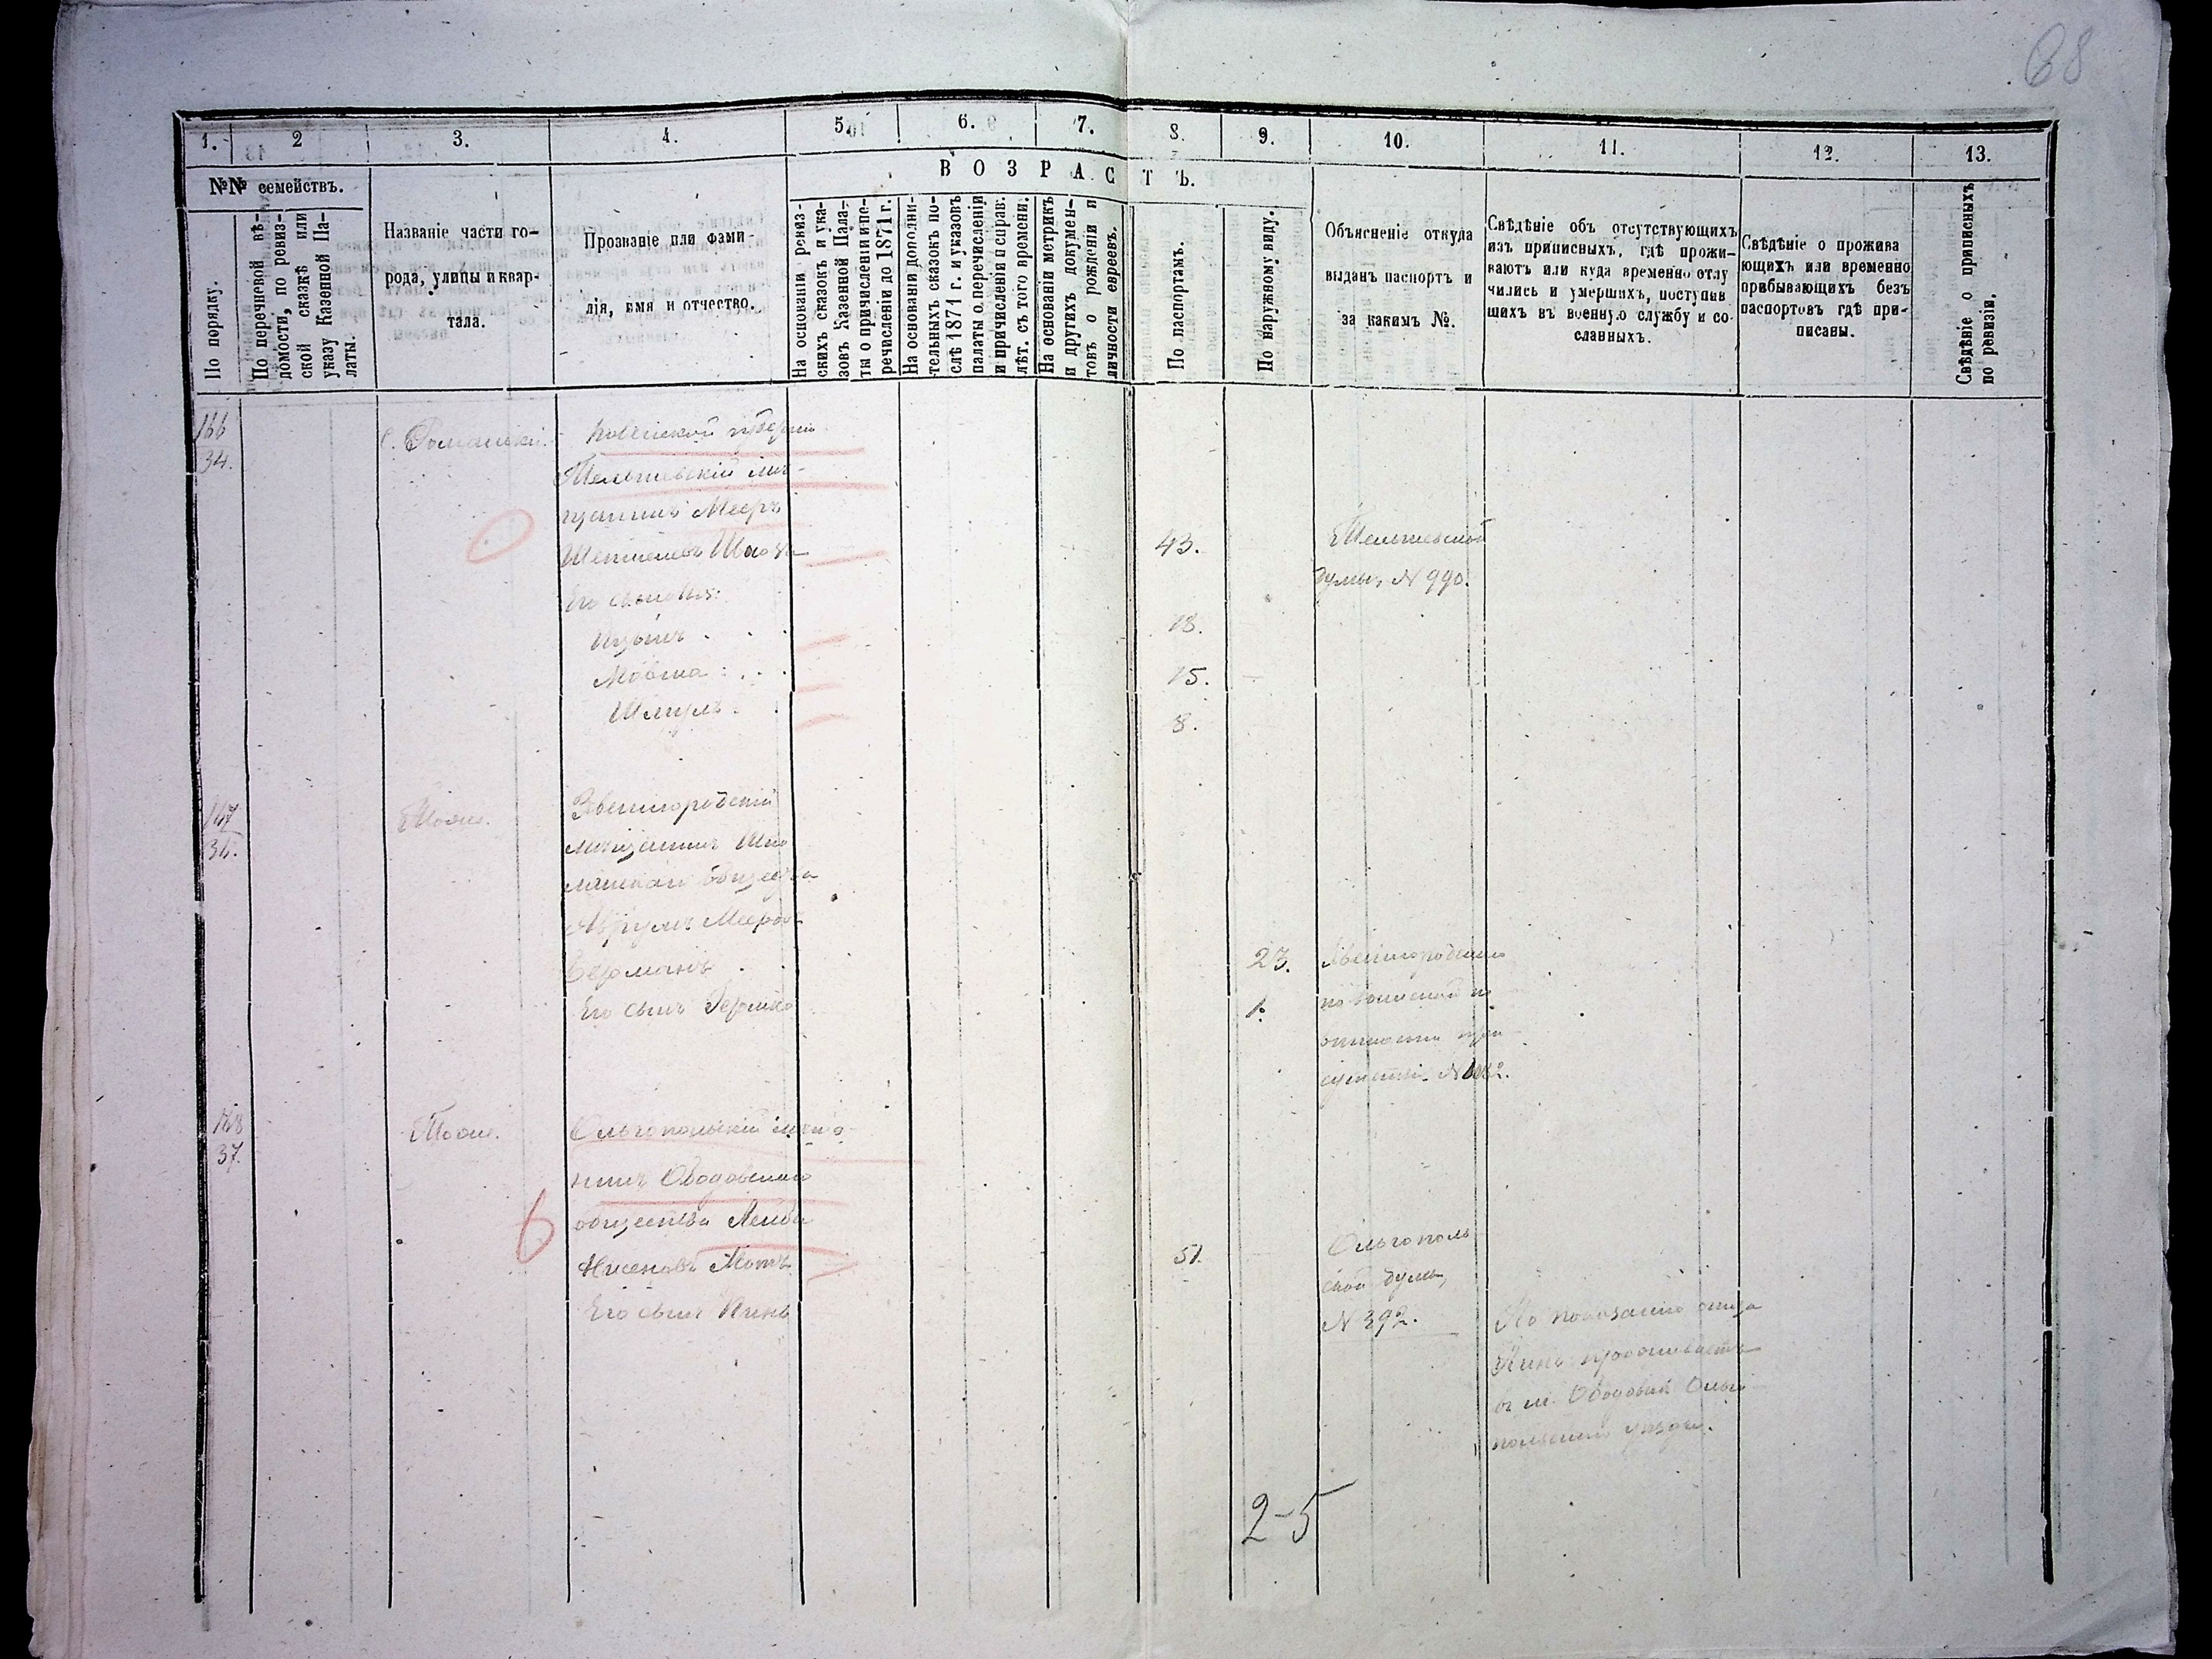 68
1. 2 3. 4. 5. 6. 7. 8. 9. 10. 11. 12. 13.
№№ семействъ.
По порядку.
По перечневой вѣ-
домости, по ревиз-
ской сказкѣ или
указу Казенной Па-
латы.
Названіе части го-
рода, улицы и квар-
тала.
Прозваніе или фами-
лія, имя и отчество.
ВОЗРАСТЪ.
На основаніи ревиз-
скихъ сказокъ и ука-
зовъ Казенной Пала-
ты о причисленіи и пе-
речисленіи до 1871 г.
На основаніи дополни-
тельныхъ сказокъ по-
слѣ 1871 г. и указовъ
палаты о перечисленіи
и причисленіи справ.
лѣт. съ того времени.
На основаніи метрикъ
и другихъ докумен-
товъ о рожденіи и
личности евреевъ.
По паспортамъ.
По наружному виду.
Объясненіе откуда
выданъ паспортъ и
за какимъ №.
Свѣдѣніе объ отсутствующихъ
изъ приписныхъ, гдѣ прожи-
ваютъ или куда временно отлу
чились и умершихъ, поступив
шихъ въ военную службу и со-
сланныхъ.
Свѣдѣніе о прожива
ющихъ или временно
прибывающихъ безъ
паспортовъ гдѣ при-
писаны.
Свѣдѣніе о приписныхъ
по ревизіи.
Ковенской губерніи
Тельшевскій мѣ-
щанинъ Мееръ
43.
Тельшевской
думы, N 990.
Его сыновья:
Ицыкъ
18.
Мовша
15.
Шмуль
8.
Тоже.
Звенигородскій
мѣщанинъ Шпо
лянскаго общества
Аврумъ Мееровъ
23.
Звенигородскаго
Его сынъ Гершко
1.
по воинской по
винности при
сутствія N
168
37.
Тоже.
Ольгопольскій мѣща
нинъ Ободовскаго
общества Лейба
Нисеновъ
51.
Ольгополь
ской думы,
N 392.
Его сынъ Пинь
По показанію отца
Пинь проживаетъ
въ м. Ободовкѣ Ольго
польскаго уѣзда.
2-5